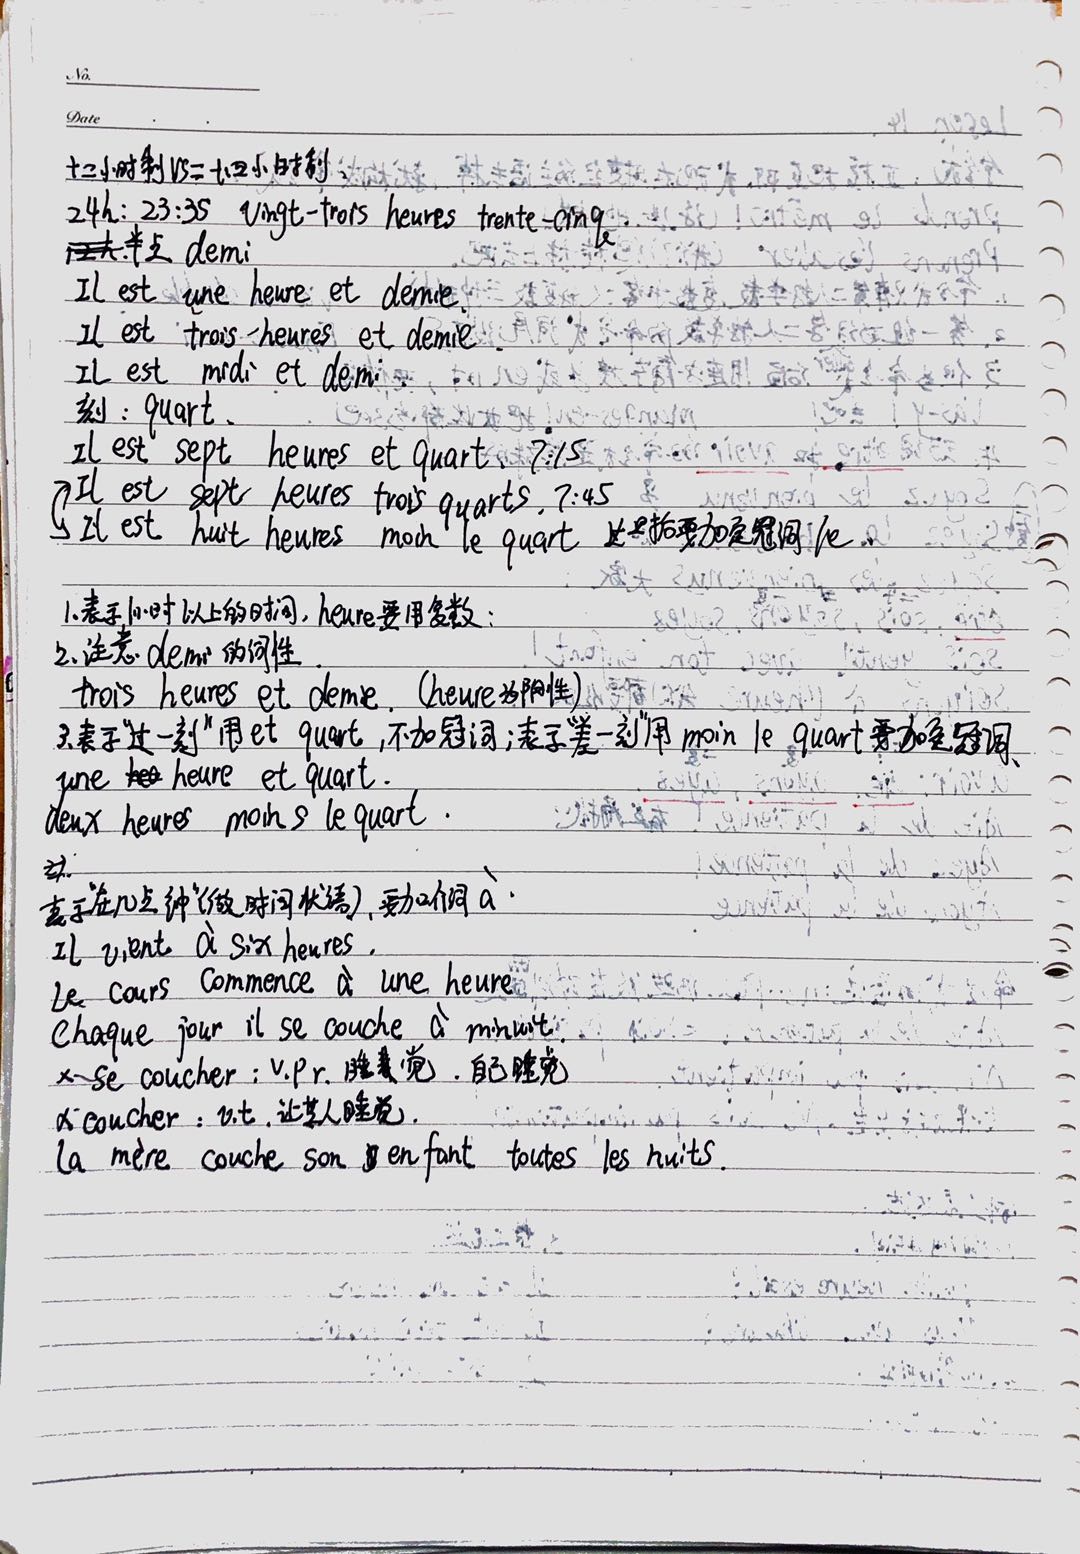 No.
Date
十二小时制VS二十四小时制、
24h: 23:35 vingt-trois heures trente-cinq
半点 demi
Il est une heure et demie.
Il est trois heures et demie.
Il est midi et demi
刻: quart.
Il est sept heures et quart. 7:15
Il est sept heures trois quarts. 7:45
Il est huit heures moin le quart 要加定冠词 le.
1.表示1小时以上的时间,heure要用复数;
2.注意 demi 的词性
trois heures et demie. (heure为阴性)
3.表示"过一刻"用 et quart,不加冠词;表示"差一刻"用 moin le quart 要加定冠词、
une heure et quart.
deux heures moins le quart.
注.
表示"在几点钟"(做时间状语)、要加介词 à.
Il vient à six heures.
Le cours commence à une heure
Chaque jour il se couche à minuit.
se coucher : v.pr. 睡觉. 自己睡觉
coucher : v.t. 让某人睡觉.
la mère couche son enfant toutes les nuits.